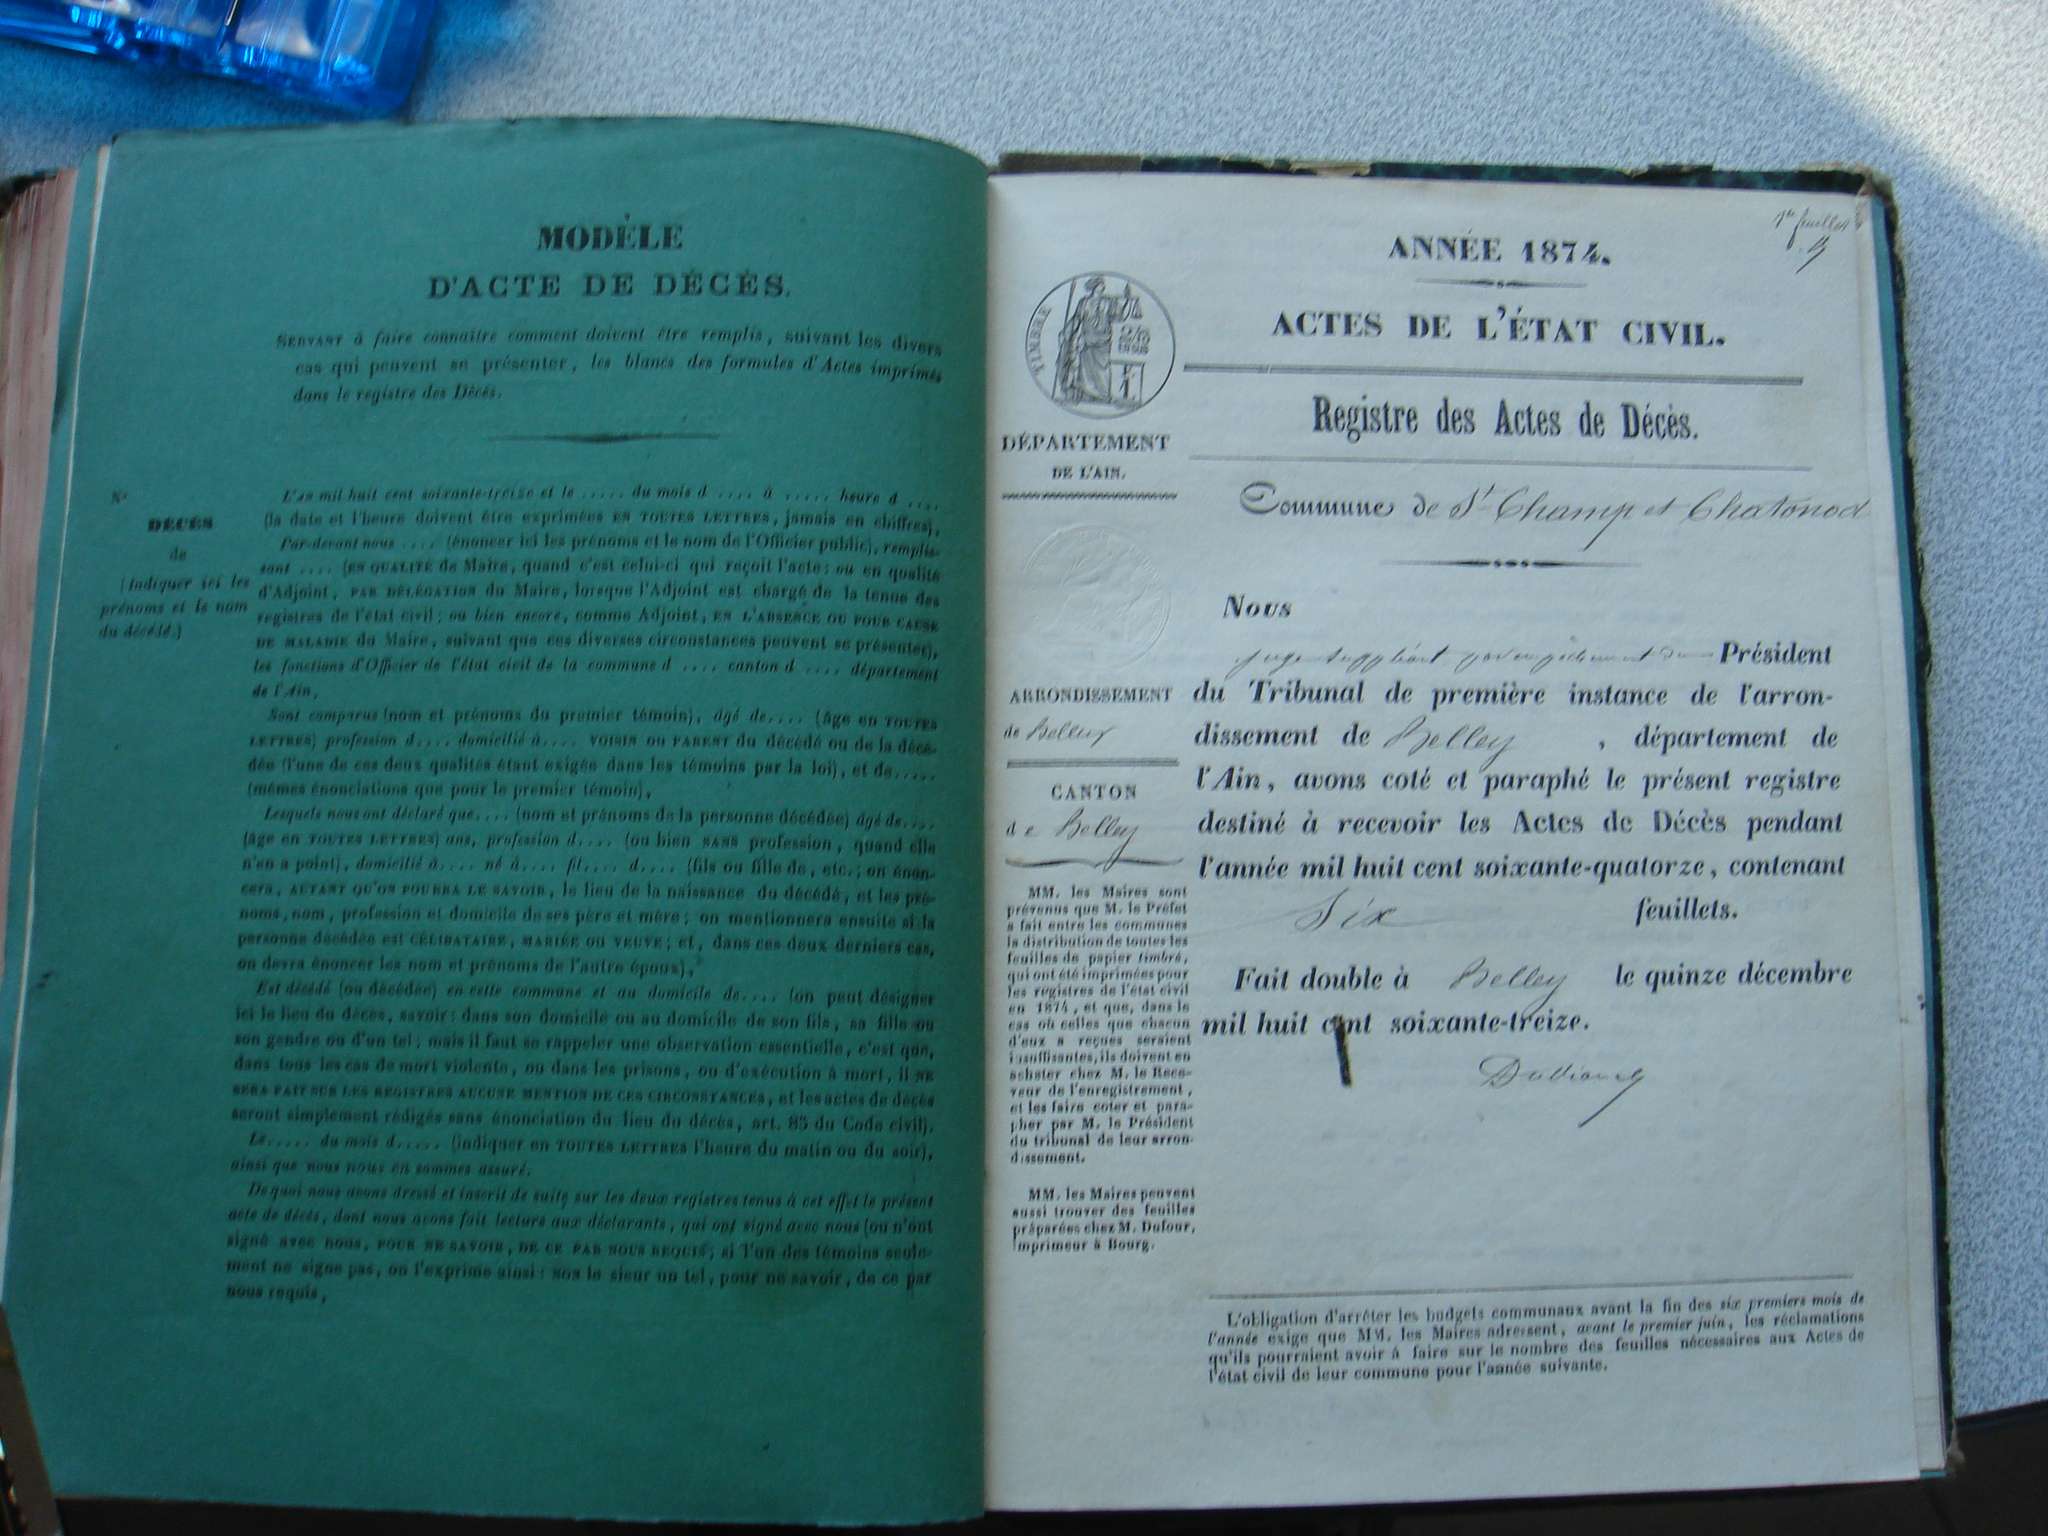 MODÈLE
D'ACTE DE DÉCÈS.
SERVANT à faire connaître comment doivent être remplis, suivant les divers
cas qui peuvent se présenter, les blancs des formules d'Actes imprimés
dans le registre des Décès.
N°
DÉCÈS
de
(Indiquer ici les
prénoms et le nom
du décédé.)
L'an mil huit cent soixante-treize et le ..... du mois d .... à ..... heure d ....
(la date et l'heure doivent être exprimées EN TOUTES LETTRES, jamais en chiffres),
Par-devant nous .... (énoncer ici les prénoms et le nom de l'Officier public), remplis-
sant .... (EN QUALITÉ de Maire, quand c'est celui-ci qui reçoit l'acte; ou en qualité
d'Adjoint, PAR DÉLÉGATION du Maire, lorsque l'Adjoint est chargé de la tenue des
registres de l'état civil; ou bien encore, comme Adjoint, EN L'ABSENCE OU POUR CAUSE
DE MALADIE du Maire, suivant que ces diverses circonstances peuvent se présenter),
les fonctions d'Officier de l'état civil de la commune d .... canton d .... département
de l'Ain,
Sont comparus (nom et prénoms du premier témoin), âgé de.... (âge en TOUTES
LETTRES) profession d.... domicilié à.... VOISIN OU PARENT du décédé ou de la décé-
dée (l'une de ces deux qualités étant exigée dans les témoins par la loi), et de.....
(mêmes énonciations que pour le premier témoin),
Lesquels nous ont déclaré que.... (nom et prénoms de la personne décédée) âgé de....
(âge en TOUTES LETTRES) ans, profession d.... (ou bien SANS profession, quand elle
n'en a point), domicilié à.... né à.... fil.... d.... (fils ou fille de, etc.; on énon-
cera, AUTANT QU'ON POURRA LE SAVOIR, le lieu de la naissance du décédé, et les pré-
noms, nom, profession et domicile de ses père et mère; on mentionnera ensuite si la
personne décédée est CÉLIBATAIRE, MARIÉE OU VEUVE; et, dans ces deux derniers cas,
on devra énoncer les nom et prénoms de l'autre époux),
Est décédé (ou décédée) en cette commune et au domicile de.... (on peut désigner
ici le lieu du décès, savoir: dans son domicile ou au domicile de son fils, sa fille ou
son gendre ou d'un tel; mais il faut se rappeler une observation essentielle, c'est que,
dans tous les cas de mort violente, ou dans les prisons, ou d'exécution à mort, IL NE
SERA FAIT SUR LES REGISTRES AUCUNE MENTION DE CES CIRCONSTANCES, et les actes de décès
seront simplement rédigés sans énonciation du lieu du décès, art. 85 du Code civil).
Le..... du mois d..... (indiquer en TOUTES LETTRES l'heure du matin ou du soir),
ainsi que nous nous en sommes assuré.
De quoi nous avons dressé et inscrit de suite sur les deux registres tenus à cet effet le présent
acte de décès, dont nous avons fait lecture aux déclarants, qui ont signé avec nous (ou n'ont
signé avec nous, POUR NE SAVOIR, DE CE PAR NOUS REQUIS; si l'un des témoins seule-
ment ne signe pas, on l'exprime ainsi: non le sieur un tel, pour ne savoir, de ce par
nous requis,
ANNÉE 1874.
ACTES DE L'ÉTAT CIVIL.
Registre des Actes de Décès.
Commune de St Champ et Chatonod
TIMBRE
2/10
EN SUS
1
DÉPARTEMENT
DE L'AIN.
ARRONDISSEMENT
de Belley
CANTON
de Belley
MM. les Maires sont
prévenus que M. le Préfet
a fait entre les communes
la distribution de toutes les
feuilles de papier timbré,
qui ont été imprimées pour
les registres de l'état civil
en 1874, et que, dans le
cas où celles que chacun
d'eux a reçues seraient
insuffisantes, ils doivent en
acheter chez M. le Rece-
veur de l'enregistrement,
et les faire coter et para-
pher par M. le Président
du tribunal de leur arron-
dissement.
MM. les Maires peuvent
aussi trouver des feuilles
préparées chez M. Dufour,
imprimeur à Bourg.
Nous
juge suppléant par empêchement du Président
du Tribunal de première instance de l'arron-
dissement de Belley, département de
l'Ain, avons coté et paraphé le présent registre
destiné à recevoir les Actes de Décès pendant
l'année mil huit cent soixante-quatorze, contenant
Six feuillets.
Fait double à Belley le quinze décembre
mil huit cent soixante-treize.
L'obligation d'arrêter les budgets communaux avant la fin des six premiers mois de
l'année exige que MM. les Maires adressent, avant le premier juin, les réclamations
qu'ils pourraient avoir à faire sur le nombre des feuilles nécessaires aux Actes de
l'état civil de leur commune pour l'année suivante.